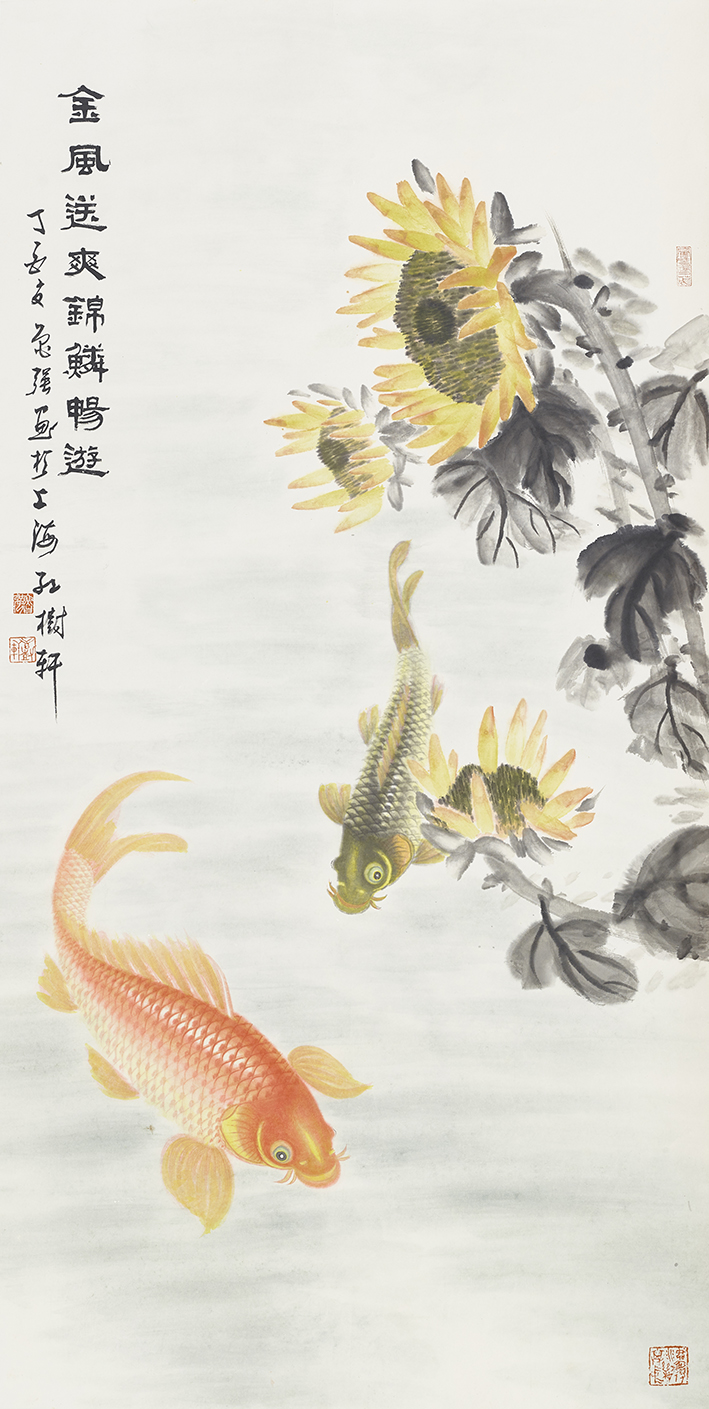 金風送爽錦鱗暢遊
丁亥强画於上海樹軒